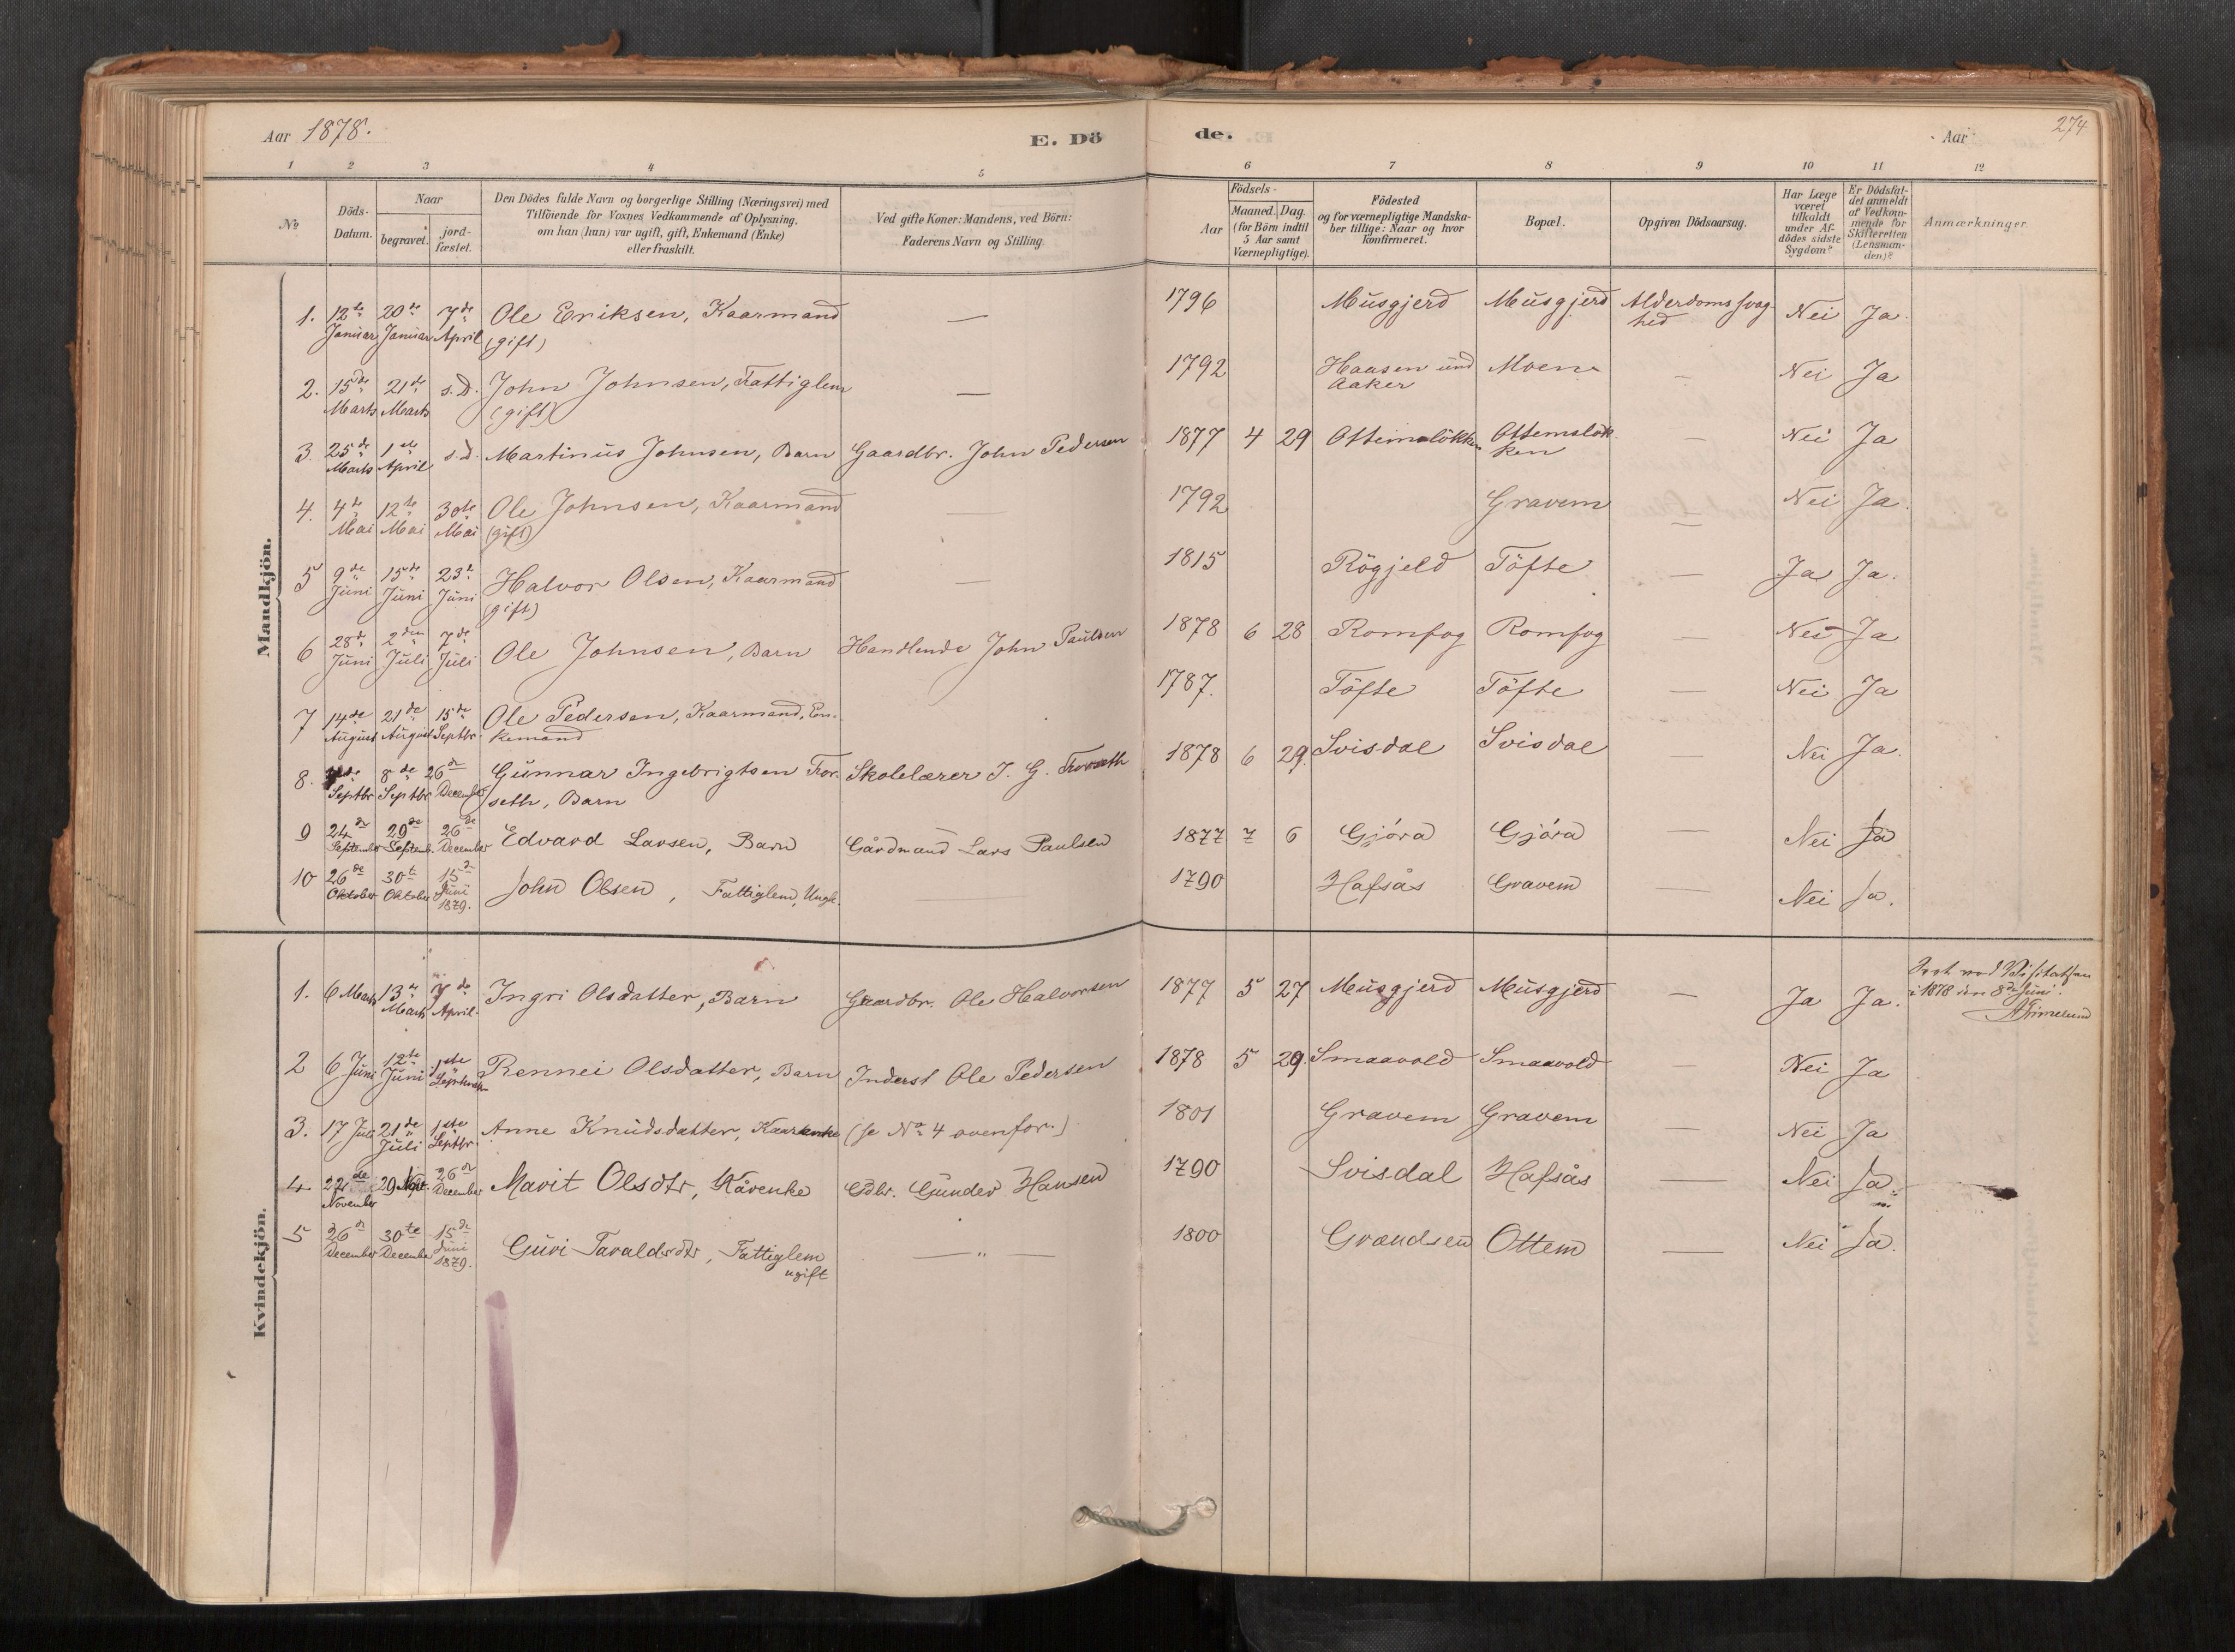 Aar 1878. E. Dö de. Aar 274
1 2 3 4 5 6 7 8 9 10 11 12
No
Döds-Datum.
Naar
begravet.
jordfæstet.
Den Dödes fulde Navn og borgerlige Stilling (Næringsvei) med
Tilföiende for Voxnes Vedkommende af Oplysning,
om han (hun) var ugift, gift, Enkemand (Enke)
eller fraskilt.
Ved gifte Koner: Mandens, ved Börn:
Faderens Navn og Stilling.
Aar
Födsels-
Maaned. Dag.
(for Börn indtil
5 Aar samt
Værnepligtige).
Födested
og for værnepligtige Mandska-
ber tillige: Naar og hvor
konfirmeret.
Bopæl.
Opgiven Dödsaarsag.
Har Læge
været
tilkaldt
under Af-
dödes sidste
Sygdom?
Er Dödsfal-
det anmeldt
af Vedkom-
mende for
Skifteretten
(Lensman-
den)?
Anmærkninger.
Mandkjön.
1. 12te Januar 20de Januar 7de April Ole Eriksen, Kaarmand (gift) — 1796 Musgjerd Musgjerd Alderdomssvaghed Nei Ja.
2. 15de Marts 21de Marts s.D. John Johnsen, Fattiglem (gift) — 1792 Haasen und Aaker Moen — Nei Ja
3. 25de Marts 1ste April s.D. Martinus Johnsen, Barn Gaardbr. John Pedersen 1877 4 29 Ottemslökken Ottemslökken — Nei Ja
4. 4de Mai 12te Mai 30te Mai Ole Johnsen, Kaarmand (gift) — 1792 Gravem — Nei Ja.
5 9de Juni 15de Juni 23de Juni Halvor Olsen, Kaarmand (gift) — 1815 Rögjeld Töfte — Ja Ja.
6 28de Juni 2den Juli 7de Juli Ole Johnsen, Barn Handlende John Paulsen 1878 6 28 Romfog Romfog — Nei Ja
7 14de August 21de August 15de Septbr. Ole Pedersen, Kaarmand, Enkemand 1787. Töfte Töfte — Nei Ja
8. Septbr 8de Septbr 26de December Gunnar Ingebrigtsen Torseth, Barn Skolelærer I. G. Torseth 1878 6 29. Svisdal Svisdal — Nei Ja.
9 24de September 29de Septemb. 26de December Edvard Larsen, Barn Gårdmand Lars Paulsen 1877 7 6 Gjöra Gjöra — Nei Ja
10 26de Oktober 30te Oktober 15de Juni 1879. John Olsen, Fattiglem, Ungk. — 1790 Hafsås Gravem — Nei Ja.
Kvindekjön.
1. 6 Marts 13de Marts 7de April Ingri Olsdatter, Barn Gaardbr. Ole Halvorsen 1877 5 27 Musgjerd Musgjerd — Ja Ja. Seet ved Visitatsen
i 1878 den 8de Juni.
AGrimelund
2 6 Juni 12te Juni 1ste September Rennei Olsdatter, Barn Inderst Ole Pedersen 1878 5 29. Smaavold Smaavold — Nei Ja
3. 17 Juli 21de Juli 1ste Septbr. Anne Knudsdatter, Kaarenke (se No 4 ovenfor.) 1801 Gravem Gravem — Nei Ja
4 22de November 29 Nov. 26de December Marit Olsdtr, Kårenke Gdbr. Gunder Hansen 1790 Svisdal Hafsås — Nei Ja.
5 26de December 30te December 15de Juni 1879. Guri Taraldsdtr, Fattiglem ugift — „ — 1800 Grandsen Ottem — Nei Ja.